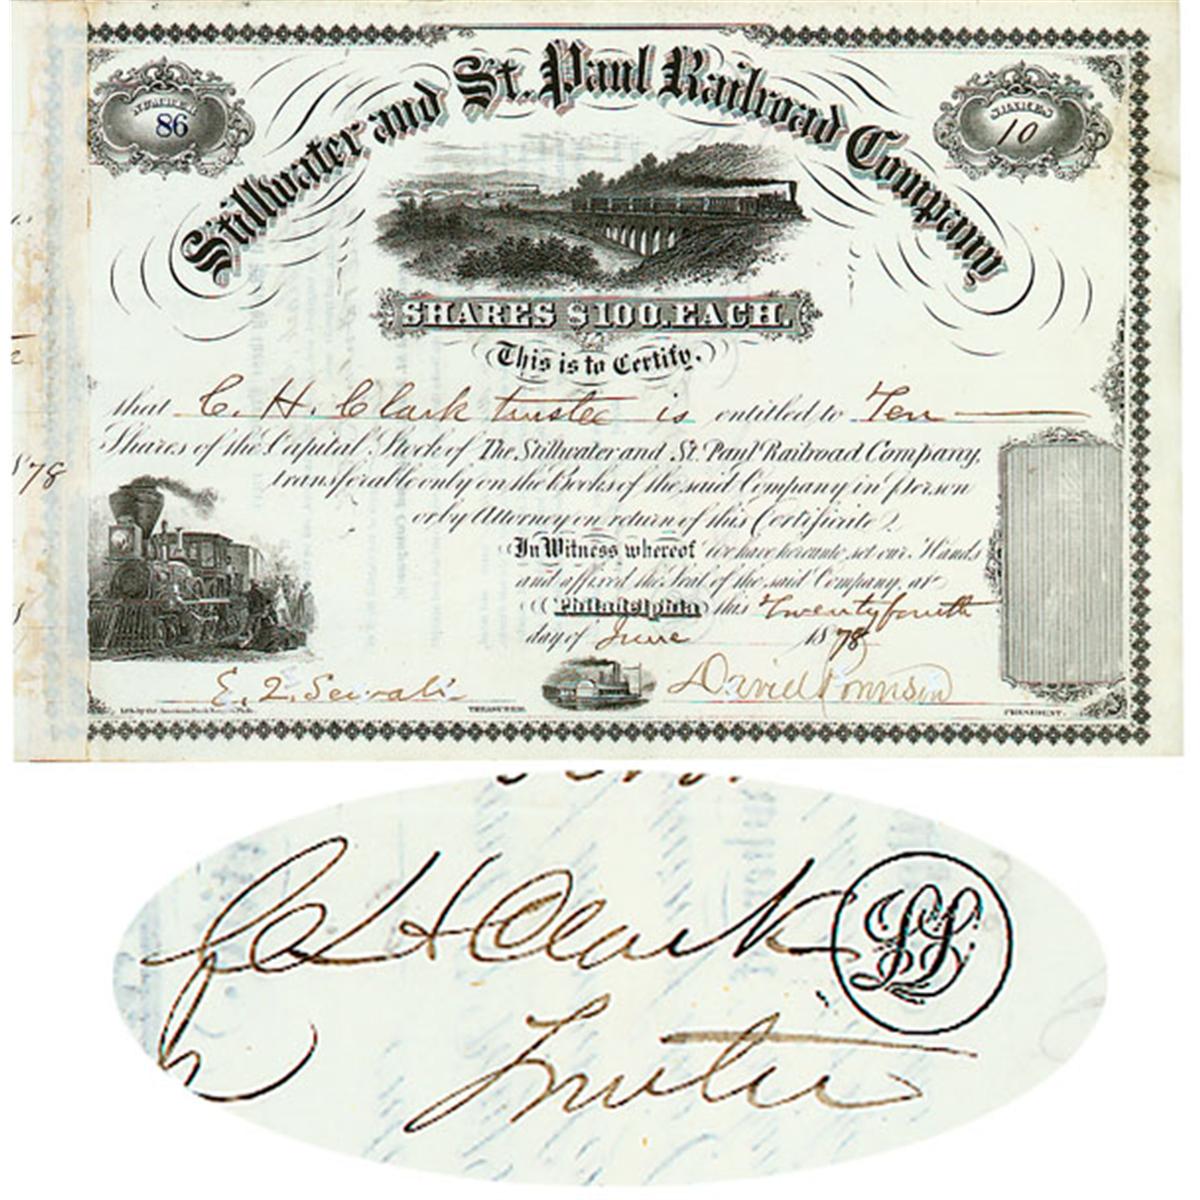 NUMBER
86
Stillwater and St. Paul Railroad Company
SHARES
10
SHARES $100. EACH.
This is to Certify.
that C. H. Clark trustee is entitled to Ten
Shares of the Capital Stock of The Stillwater and St. Paul Railroad Company,
transferable only on the Books of the said Company in person
or by Attorney on return of this Certificate.
In Witness whereof we have hereunto set our Hands
and affixed the Seal of the said Company, at
Philadelphia this Twenty fourth
day of June 1878
'78
TREASURER.
PRESIDENT.
C H Clark
Trustee